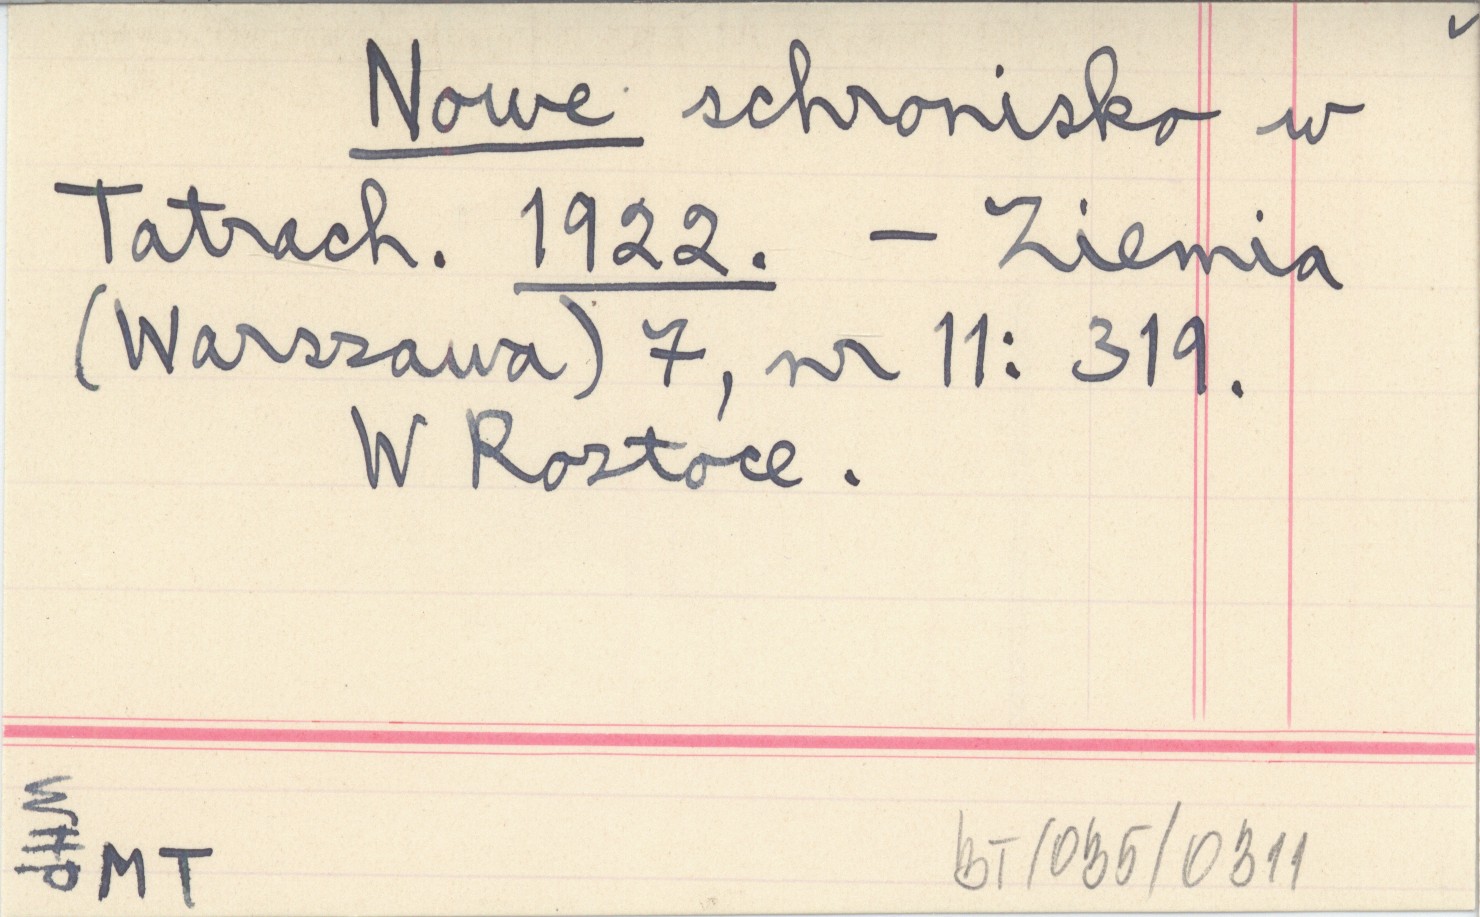 Nowe schronisko w
Tatrach. 1922. — Ziemia
(Warszawa) 7, nr 11: 319.
W Roztoce.
MT
BT/035/0311